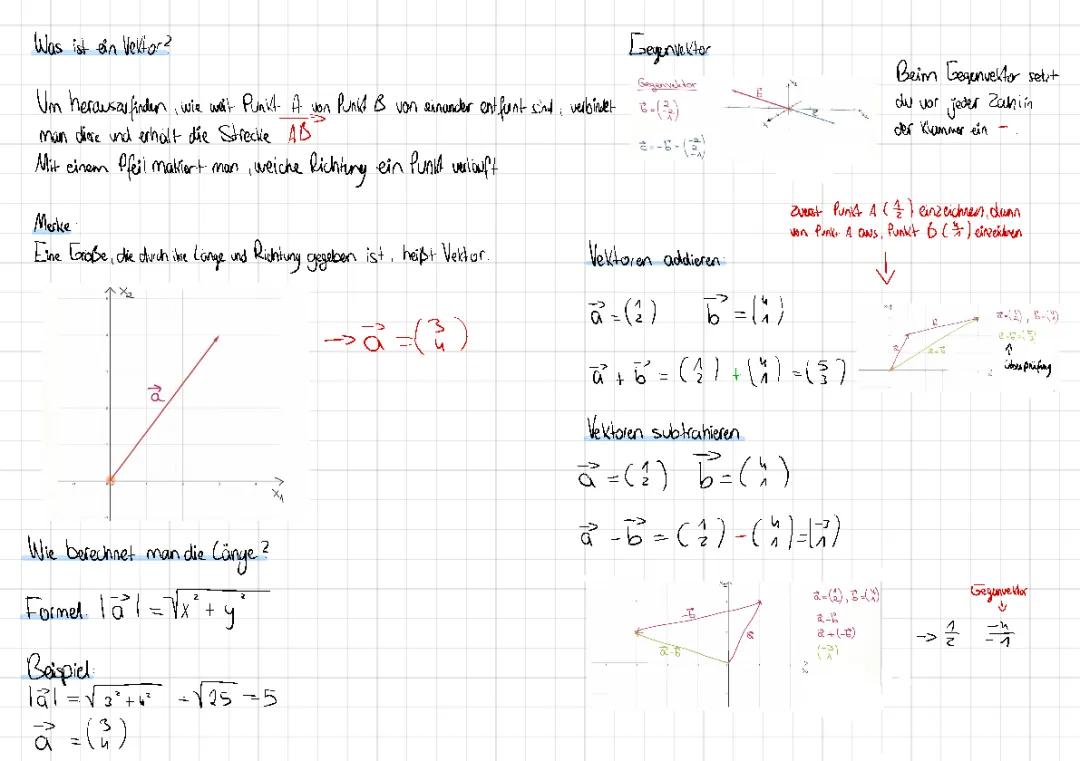 Was ist ein Vektor?
Um herauszufinden, wie weit Punkt A von Punkt B von einander entfernt sind, verbindet
man diese und erhält die Strecke AB
Mit einem Pfeil makiert man, welche Richtung ein Punkt verläuft
Merke:
Eine Größe, die durch ihre Länge und Richtung gegeben ist, heißt Vektor.
x₂
a
x₁
→ a = (3 4)
Wie berechnet man die Länge?
Formel: |a| = √x² + y²
Beispiel:
|a| = √3² + 4² = √25 = 5
a = (3 4)
Gegenvektor
Gegenvektor
Beim Gegenvektor setzt
du vor jeder Zahl in
der Klammer ein -.
zuerst Punkt A (1 2) einzeichnen, dann
von Punkt A aus, Punkt B (4 1) einzeichnen
Vektoren addieren:
a = (1 2) b = (4 1)
a + b = (1 2) + (4 1) = (5 3)
a = (1 2), b = (4 1)
überprüfung
Vektoren subtrahieren
a = (1 2) b = (4 1)
a - b = (1 2) - (4 1) = (-3 1)
-b
a
a-b
a = (1 2), b = (4 1)
a-b
a + (-b)
(-3 1)
Gegenvektor
→ 1 2 -4 -1